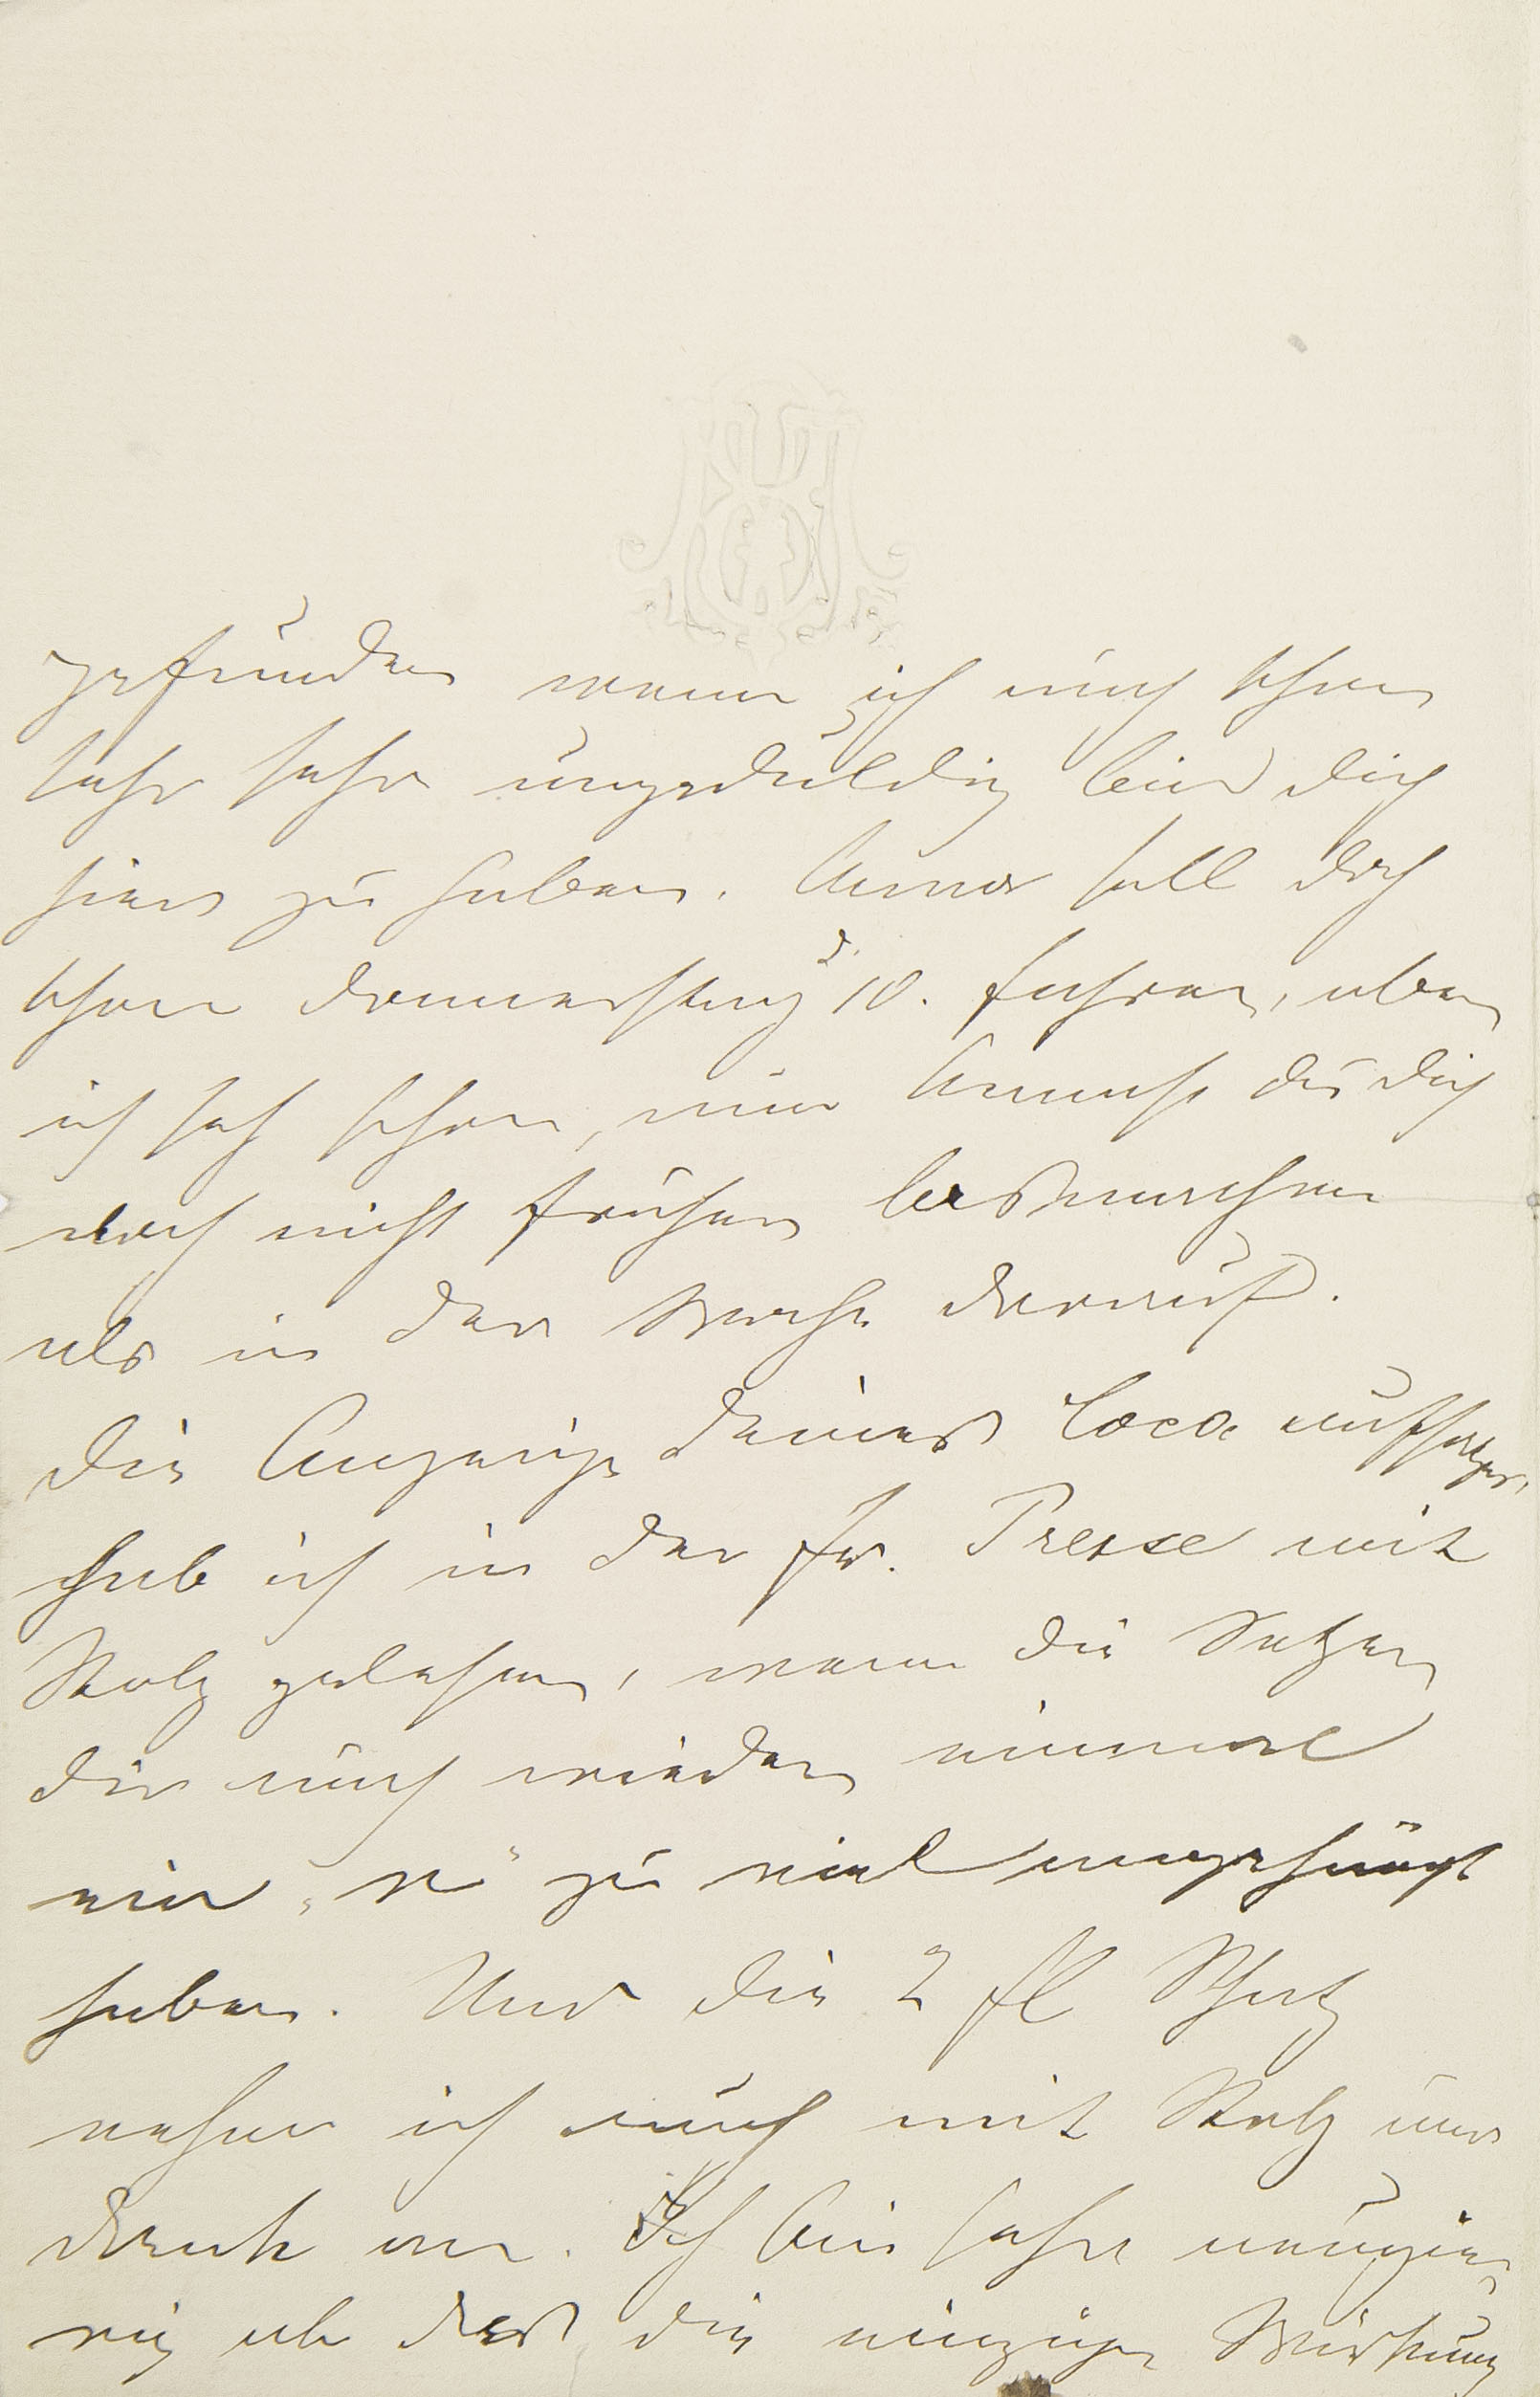 gefunden wenn ich auch schon
sehr sehr ungeduldig bin dich
hier zu haben. Anna soll doch
schon Donnerstag d. 10. fahren, aber
ich sah schon, mir kannst du dich
doch nicht früher losmachen
als in der Woche darauf.
Die Anzeige deines Coca aufsatzes
hab ich in der fr. Presse mit
Stolz gelesen, wenn die Setzer
dir auch wieder einmal
ein „n“ zu viel angehängt
haben. Und die 2 fl Schatz
nehm ich auch mit Stolz und
Dank an. Ich bin sehr neugie-
rig ob das die einzige Wirkung